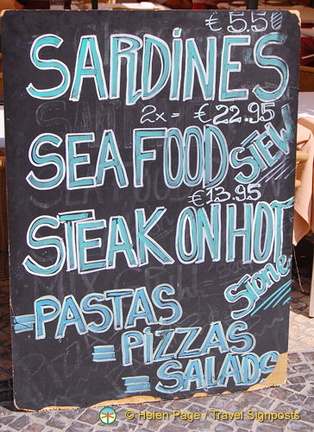 € 5.50
SARDINES
2x = € 22.95
SEA FOOD STEW
€ 13.95
STEAK ON HOT
Stone
=PASTAS
=PIZZAS
=SALADS
© Helen Page / Travel Signposts